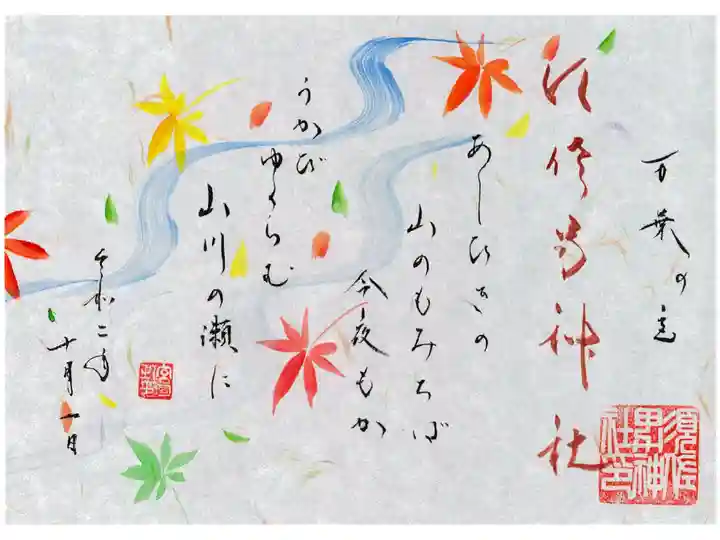 万葉の
須佐男神社
須佐
男神
社印
あしひきの
山のもみちば
今夜もか
うかび
ゆくらむ
山川の瀬に
令和二年
十月一日